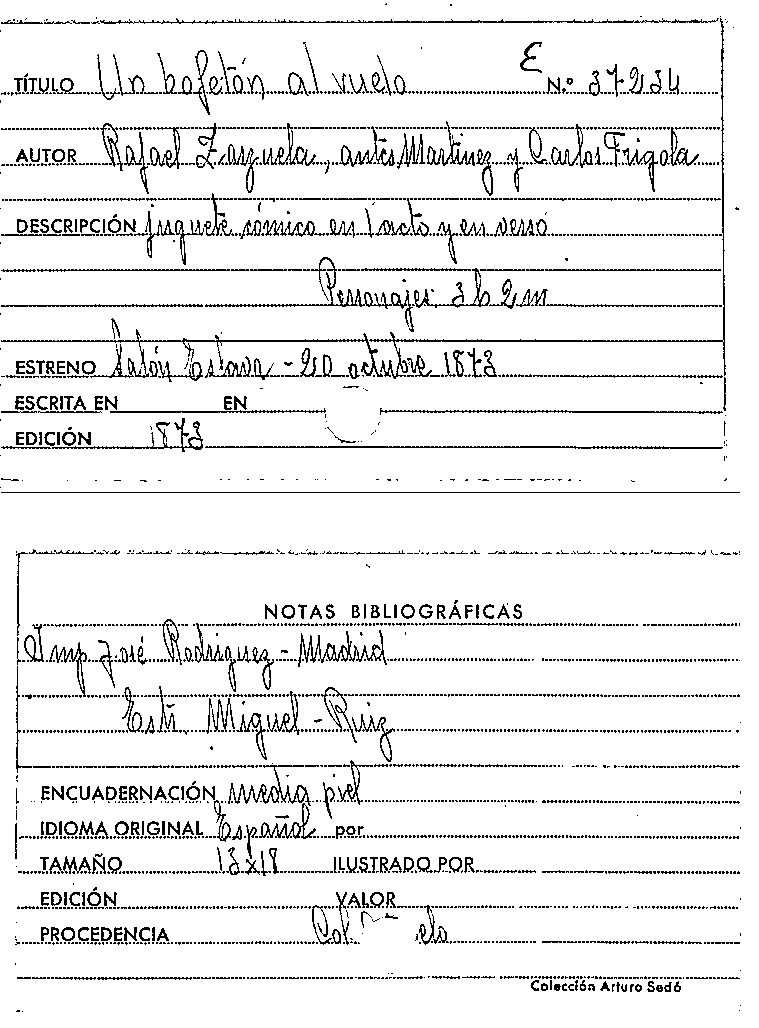 TÍTULO Un bofetón al vuelo E N.º 37234
AUTOR Rafael Zazuela, antes Martinez y Carlos Frigola
DESCRIPCIÓN juguete cómico en 1 acto y en verso
Personajes: 3 h 2 m
ESTRENO Salón Eslava - 20 octubre 1873
ESCRITA EN EN
EDICIÓN 1873
NOTAS BIBLIOGRÁFICAS
Imp José Rodriguez - Madrid
Estr. Miguel - Ruiz
ENCUADERNACIÓN media piel
IDIOMA ORIGINAL Español por
TAMAÑO 13x18 ILUSTRADO POR
EDICIÓN VALOR
PROCEDENCIA Col.
Colección Arturo Sedó